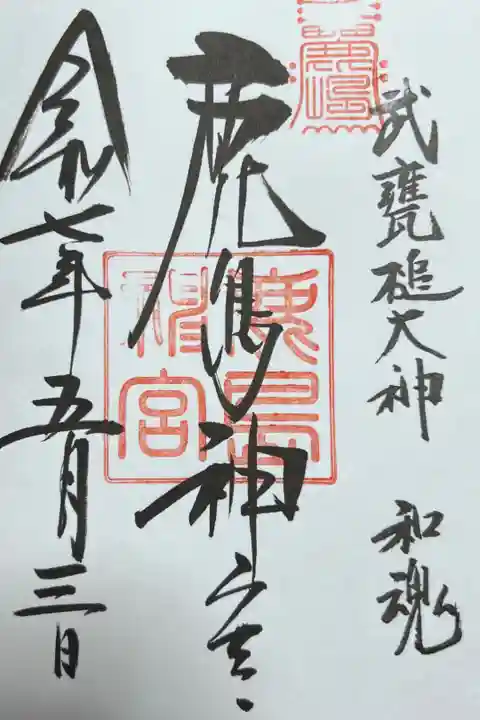 武甕槌大神 和魂
鹿島神宮
鹿島
神宮
令和七年五月三日